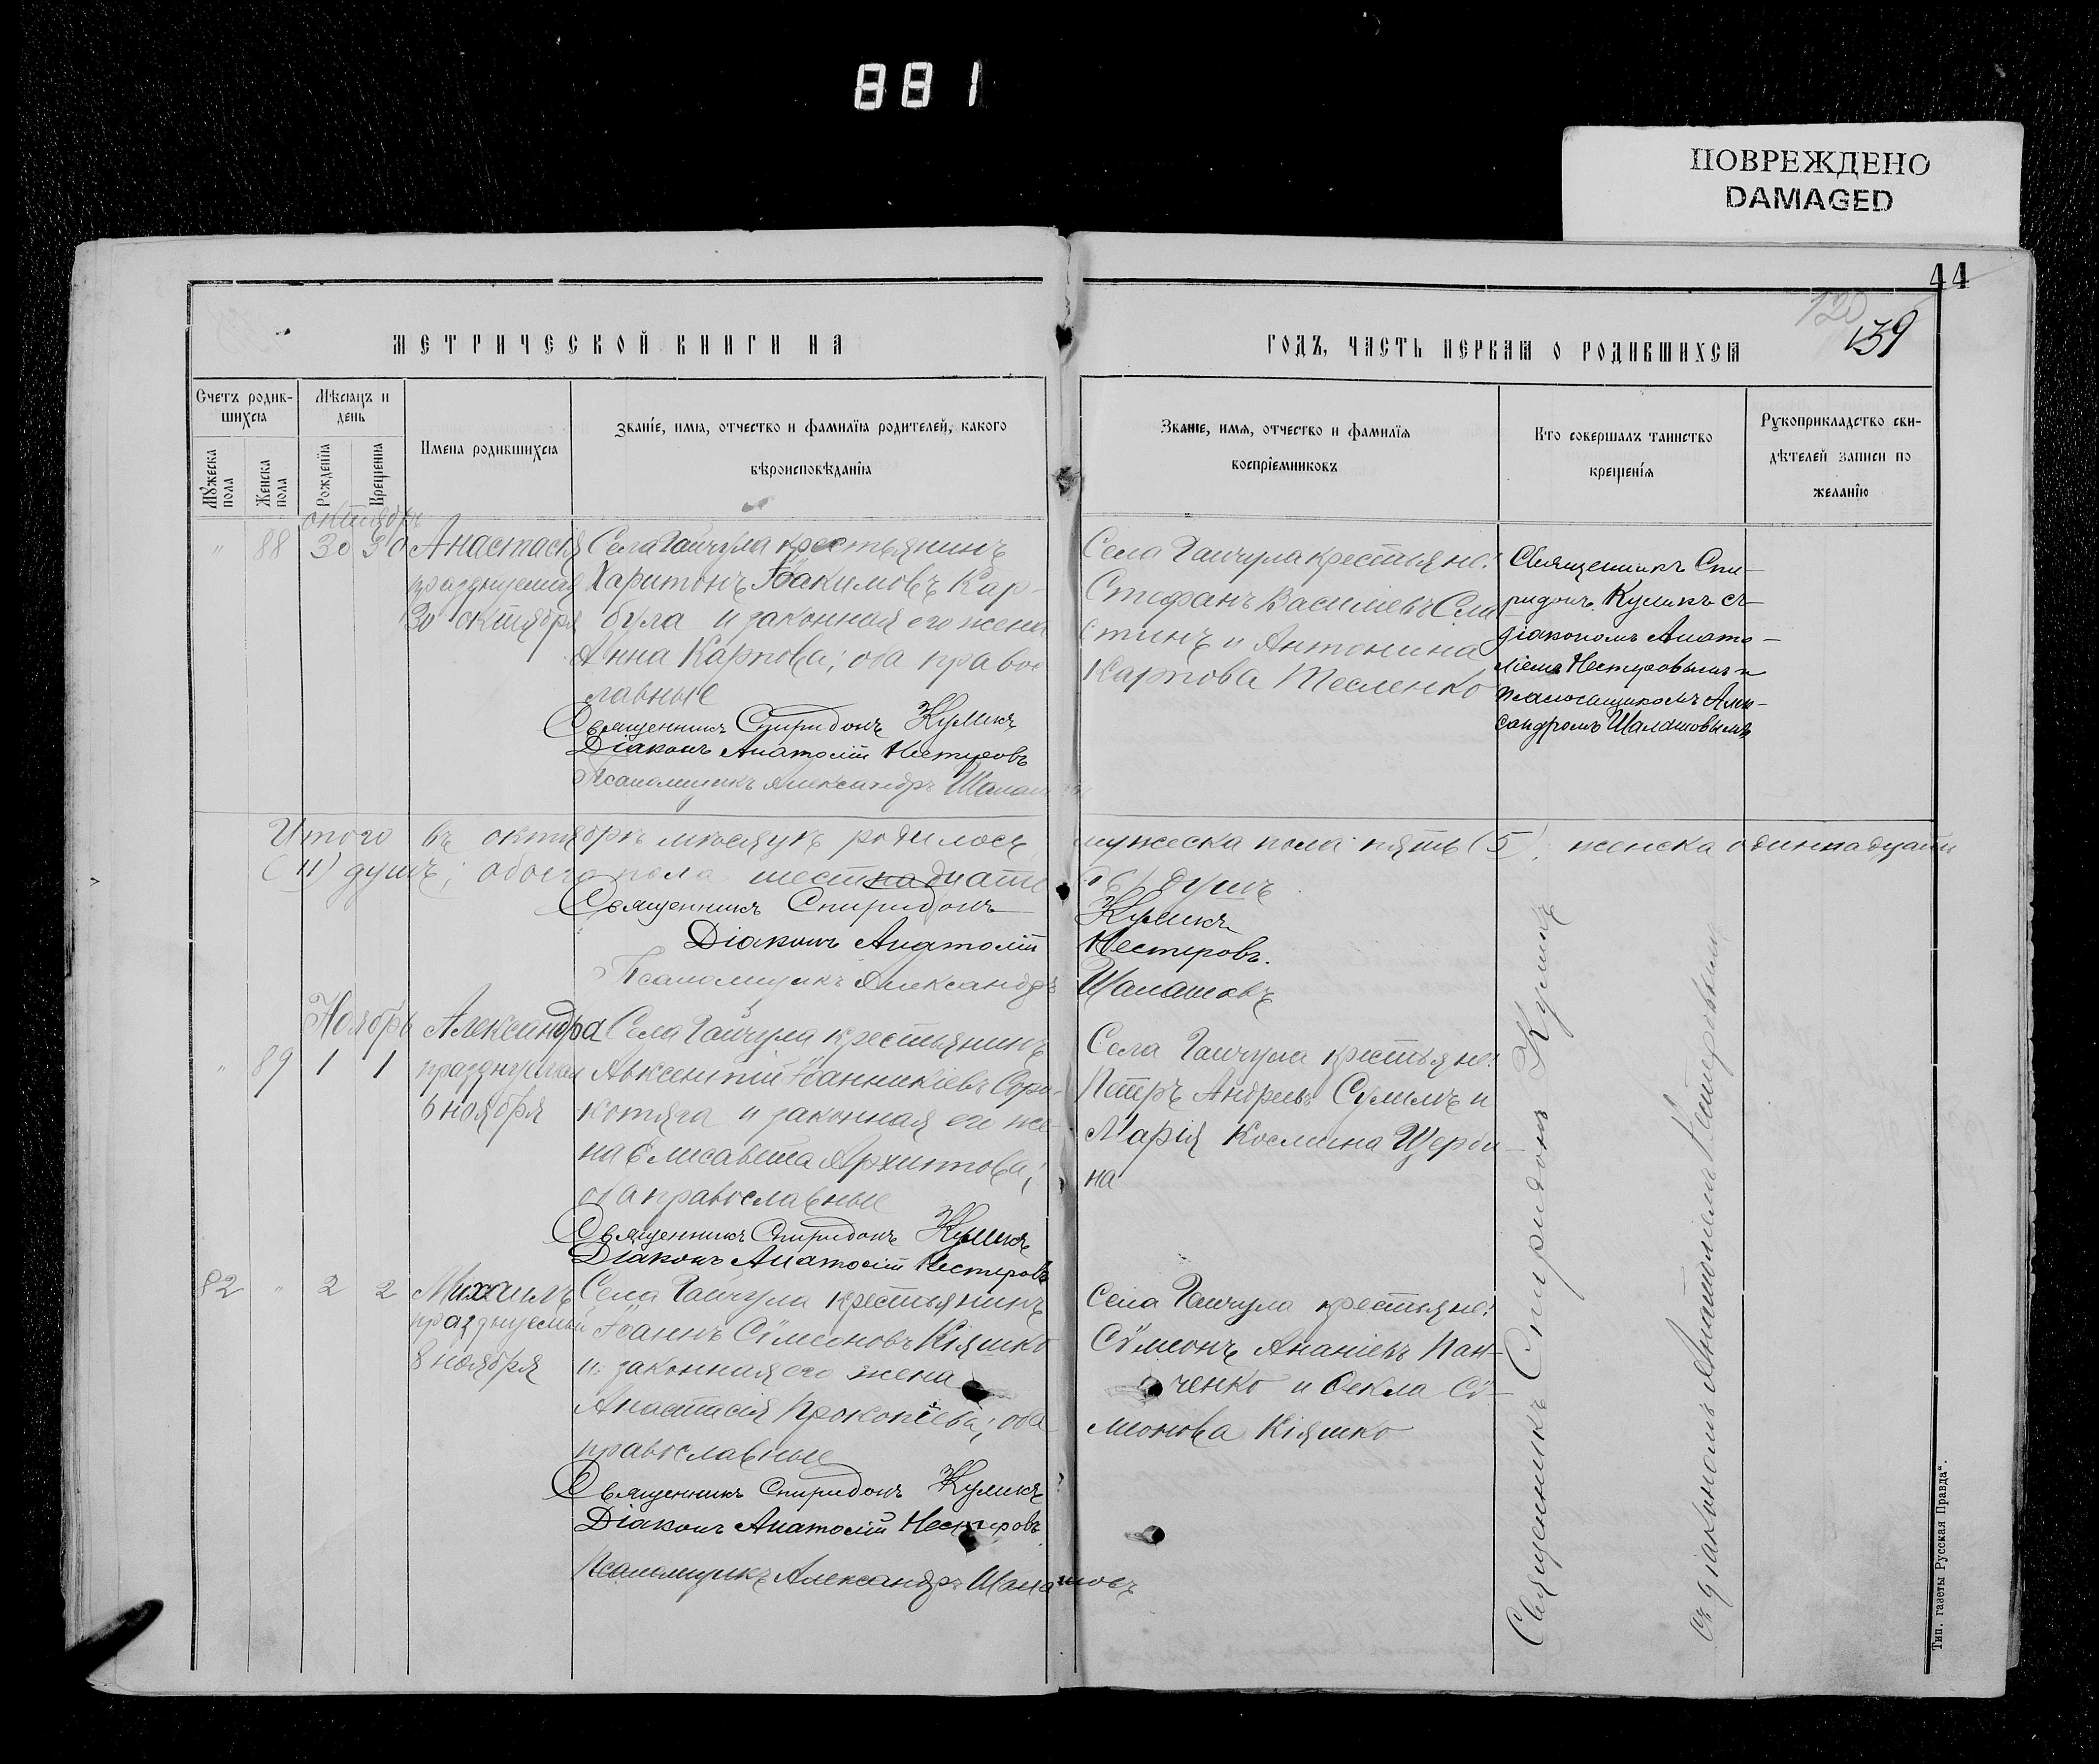 881
ПОВРЕЖДЕНО
DAMAGED
44
120
139
МЕТРИЧЕСКОЙ КНИГИ НА
ГОДЪ, ЧАСТЬ ПЕРВАЯ О РОДИВШИХСЯ
Счетъ родив-
шихся
Мѣсяцъ и
день
Мужеска
пола
Женска
пола
Рожденїя
Крещенїя
Имена родившихся
Званїе, имя, отчество и фамилїя родителей, какого
вѣроисповѣданїя
Званїе, имя, отчество и фамилїя
воспрїемниковъ
Кто совершалъ таинство
крещенїя
Рукоприкладство сви-
дѣтелей записи по
желанїю
октябрь
" 88 30 30 Анастасія
празднуемая
30 октября
Села Гайчула крестьянинъ
Харитонъ Іоакимовъ Кар-
була и законная его жена
Анна Карпова; оба право
славные
Священникъ Спиридонъ Куликъ
Діаконъ Анатолій Нестеровъ
Псаломщикъ Александръ Шалашовъ
Села Гайчула крестьяне:
Стефанъ Василіевъ
и Антонина
Карпова Тесленко
Священникъ Спи-
ридонъ Куликъ съ
діакономъ Анато-
ліемъ Нестеровымъ и
псаломщикомъ Алек-
сандромъ Шалашовымъ
Итого въ октябрѣ мѣсяцѣ родилось мужеска пола пять (5), женска одиннадцать
(11) душъ; обоего пола шестнадцать (16) душъ
Священникъ Спиридонъ Куликъ
Діаконъ Анатолій Нестеровъ.
Псаломщикъ Александръ Шалашовъ
Ноябрь
" 89 1 1
Александра
празднуемая
6 ноября
Села Гайчула крестьянинъ
Авксентій Іоанникіевъ Соро-
котяга и законная его же-
на Елисавета Архиппова;
оба православные
Священникъ Спиридонъ Куликъ
Діаконъ Анатолій Нестеровъ
Села Гайчула крестьяне:
Петръ Андреевъ Сулимъ и
Марія Космина Щерби-
на
82 " 2 2
Михаилъ
празднуемый
8 ноября
Села Гайчула крестьянинъ
Іоаннъ Сѵмеоновъ Кіяшко
и законная его жена
Анастасія Прокопіева; оба
православные
Священникъ Спиридонъ Куликъ
Діаконъ Анатолій Нестеровъ
Псаломщикъ Александръ Шалашовъ
Села Гайчула крестьяне:
Сѵмеонъ Ананіевъ Пан-
ченко и Ѳекла Сѵ-
меонова Кіяшко
Священникъ Спиридонъ Куликъ
съ діакономъ Анатоліемъ Нестеровымъ
Тип. газеты Русская Правда".